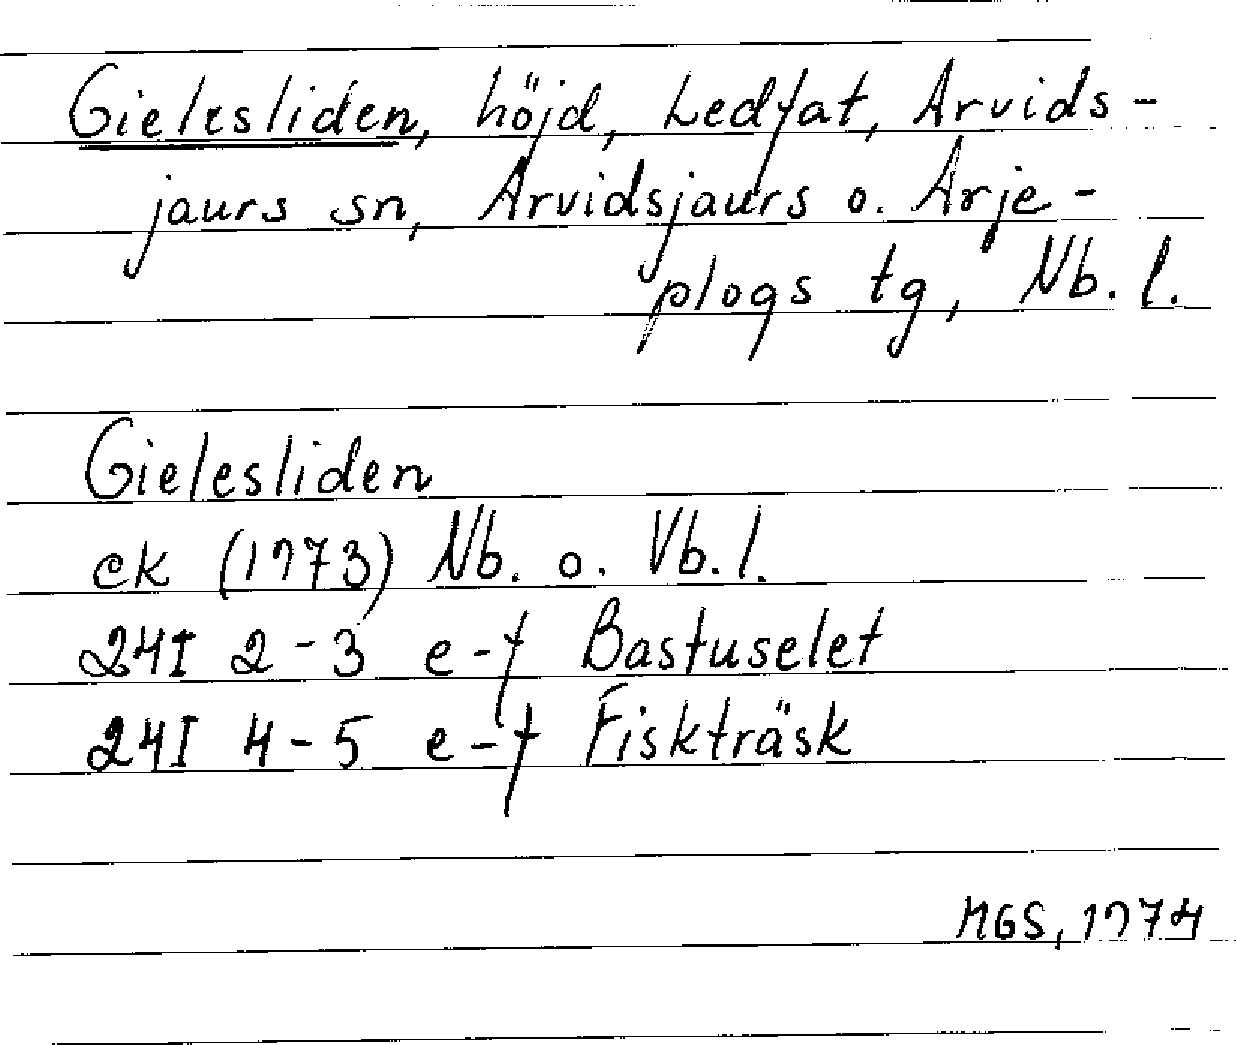 Gielesliden, höjd, Ledfat, Arvids-
jaurs sn, Arvidsjaurs o. Arje-
plogs tg, Nb. l.
Gielesliden
ek (1973) Nb. o. Vb. l.
24I 2-3 e-f Bastuselet
24I 4-5 e-f Fiskträsk
MGS, 1974